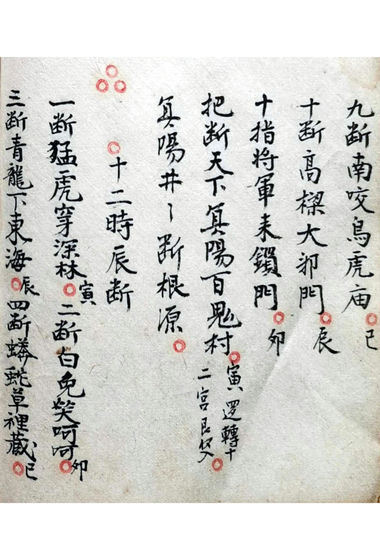 九断南咬鳥虎庙巳
十断高樑大邪門辰
十指将軍来鐲門卯
把断天下冥陽百鬼村寅 逻轉十二宫
冥陽井〻断根源
十二時辰断
一断猛虎穿深林寅 二断白兔笑呵呵卯
三断青龍下東海辰 四断蟒蛇草裡蔵巳